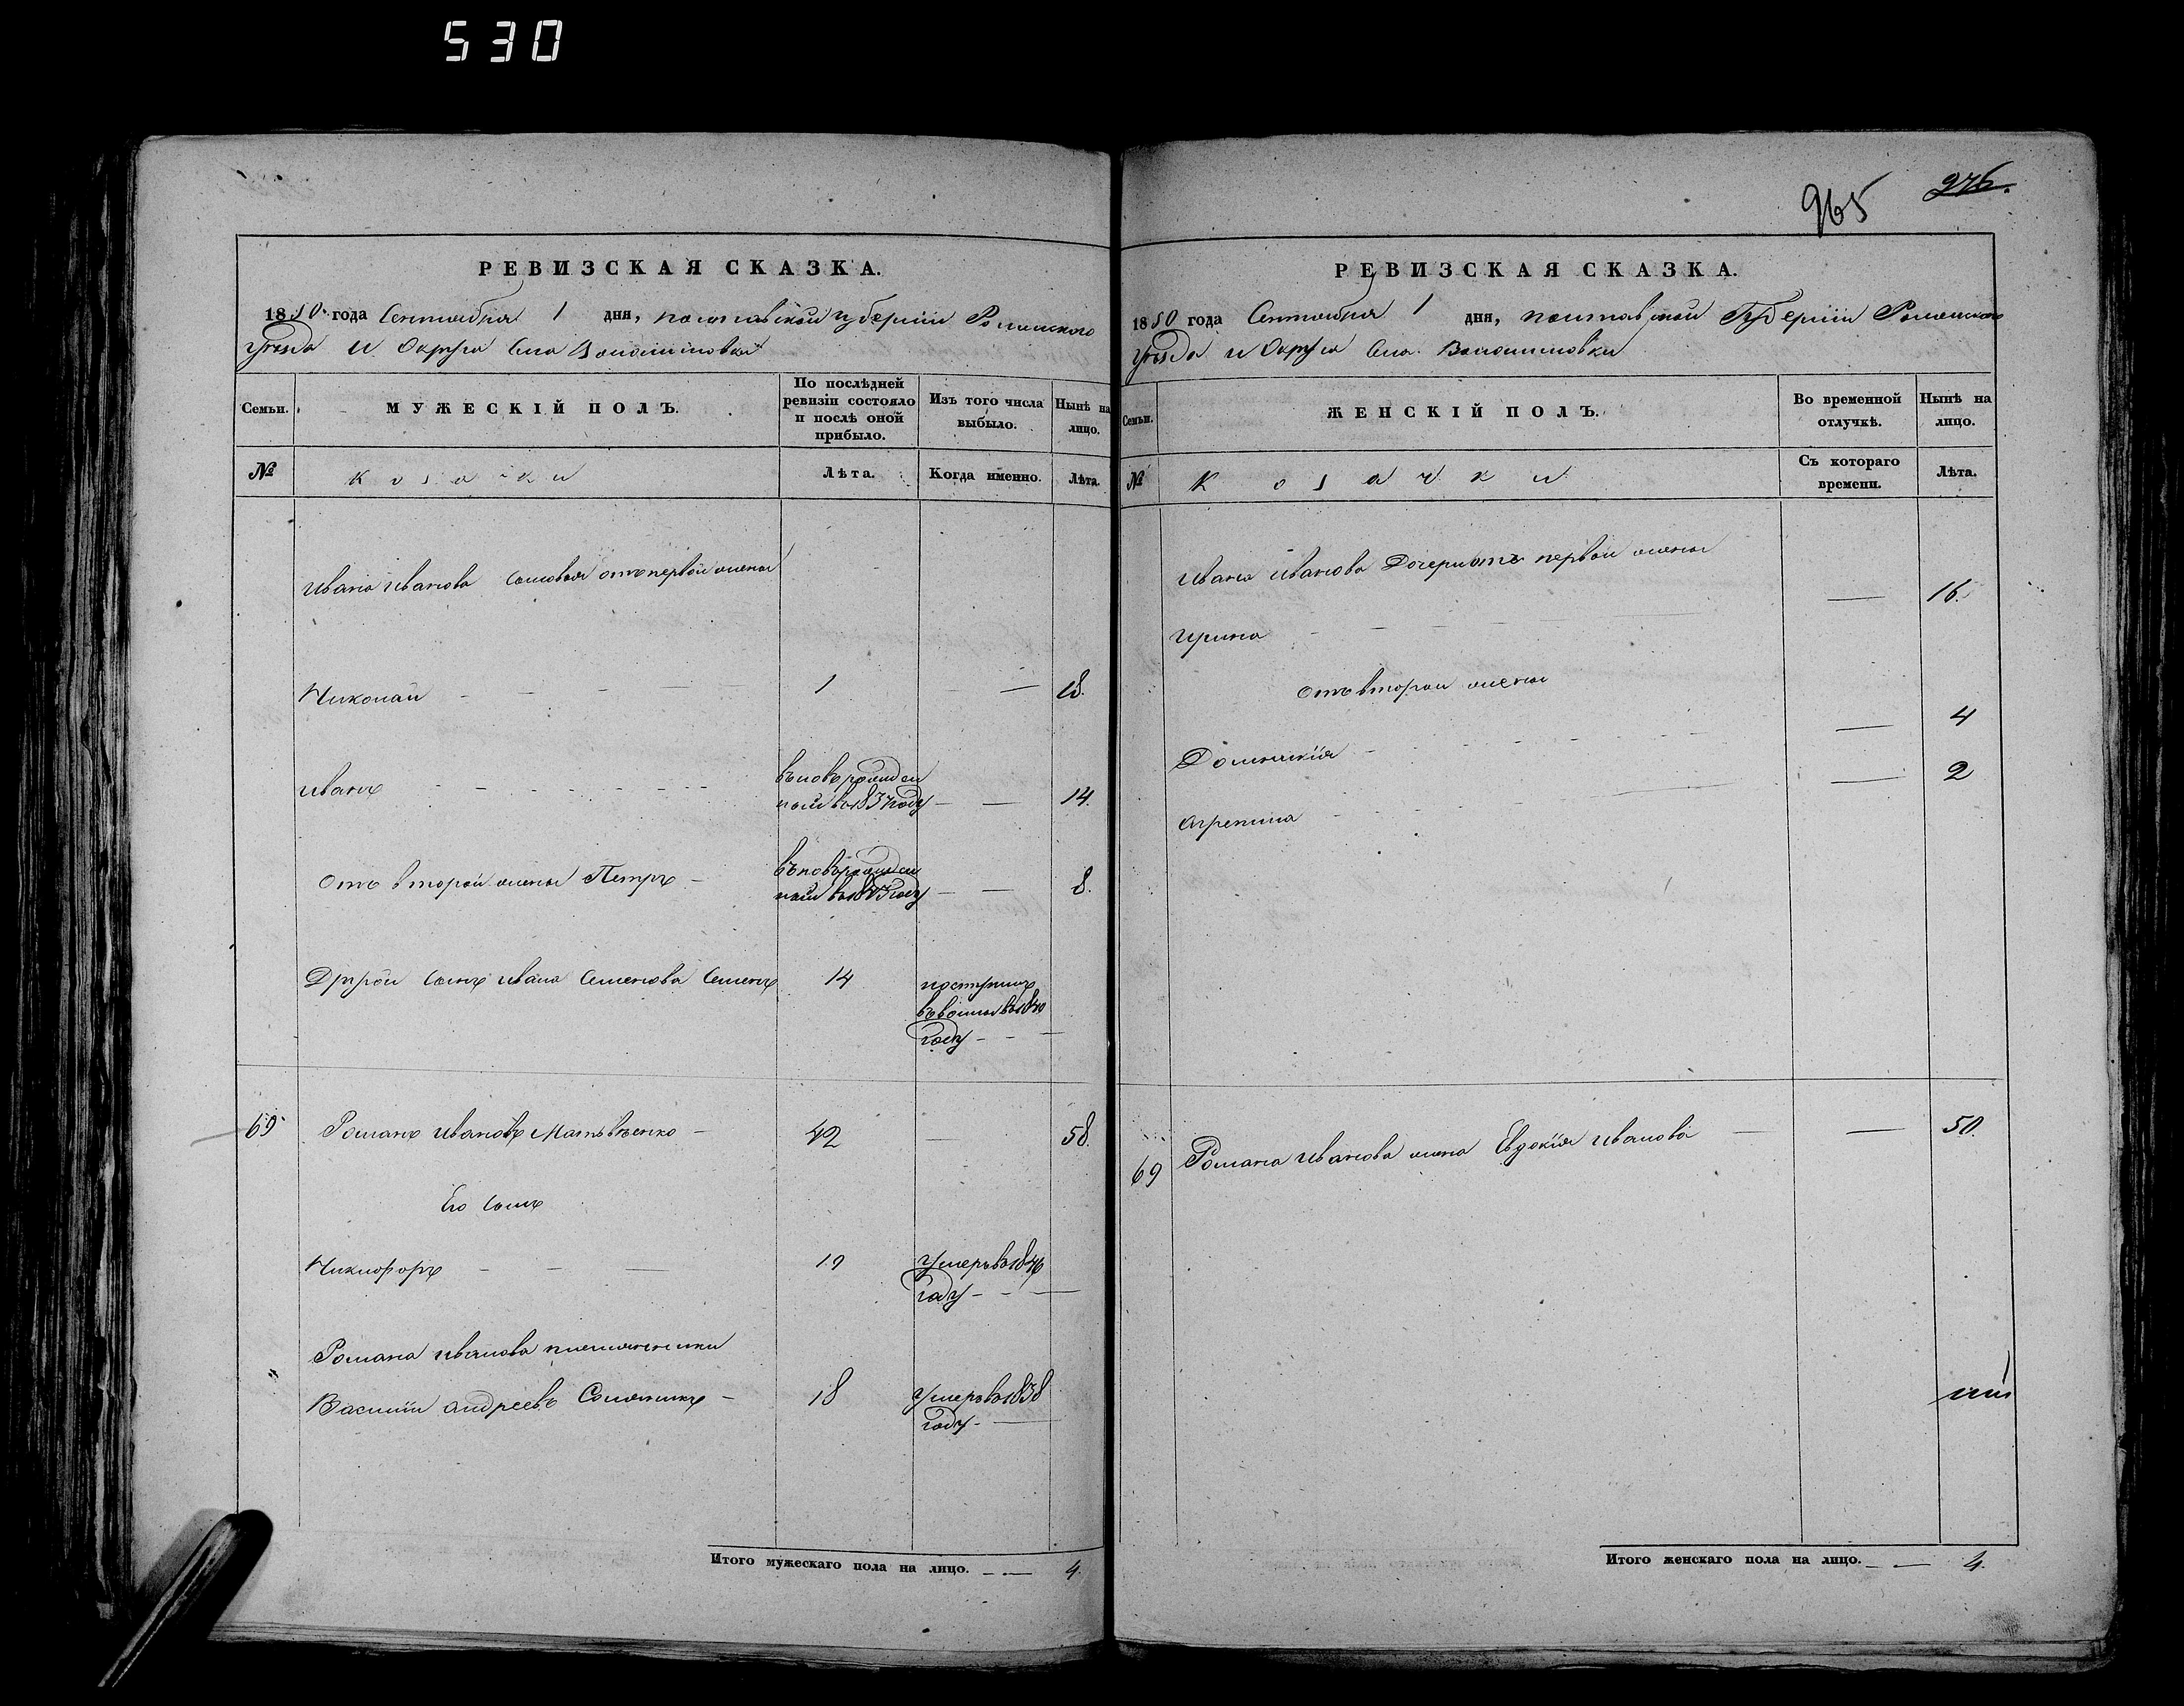 530
965
276.
РЕВИЗСКАЯ СКАЗКА.
1850 года Сентября 1 дня, полтавской губерніи Роменского
уѣзда и Округа Села Волошиновки
Семьи.
МУЖЕСКІЙ ПОЛЪ.
По послѣдней ревизіи состояло и послѣ оной прибыло.
Изъ того числа выбыло.
Нынѣ на лицо.
№
козаки
Лѣта.
Когда именно.
Лѣта.
Ивана Иванова сыновья отъ первой жены
Николай 1 18.
Иванъ въновь рожден
ный въ 1837 году 14.
Отъ второй жены Петръ въновь рожден
ный въ 1843 году 8.
Другой сынъ Ивана Семенова Семенъ 14 поступилъ
въ воины въ 1840
году
69 Романъ Ивановъ Матвѣенко 42 58.
Его сынъ
Никифоръ 19 Умеръ въ 1846
году
Романа Иванова племянники
Василий Андреевъ 18 Умеръ въ 1838
году
Итого мужескаго пола на лицо. 4.
РЕВИЗСКАЯ СКАЗКА.
1850 года Сентября 1 дня, полтавской Губерніи Роменского
уѣзда и Округа Села Волошиновки
Семьи.
ЖЕНСКІЙ ПОЛЪ.
Во временной отлучкѣ.
Нынѣ на лицо.
№
Козачки
Съ котораго времени.
Лѣта.
Ивана Иванова Дочери отъ первой жены
Ирина 16.
отъ второй жены
Домникія 4
Агрепина 2
69 Романа Иванова жена Евдокія Иванова 50.
Итого женскаго пола на лицо. 4.